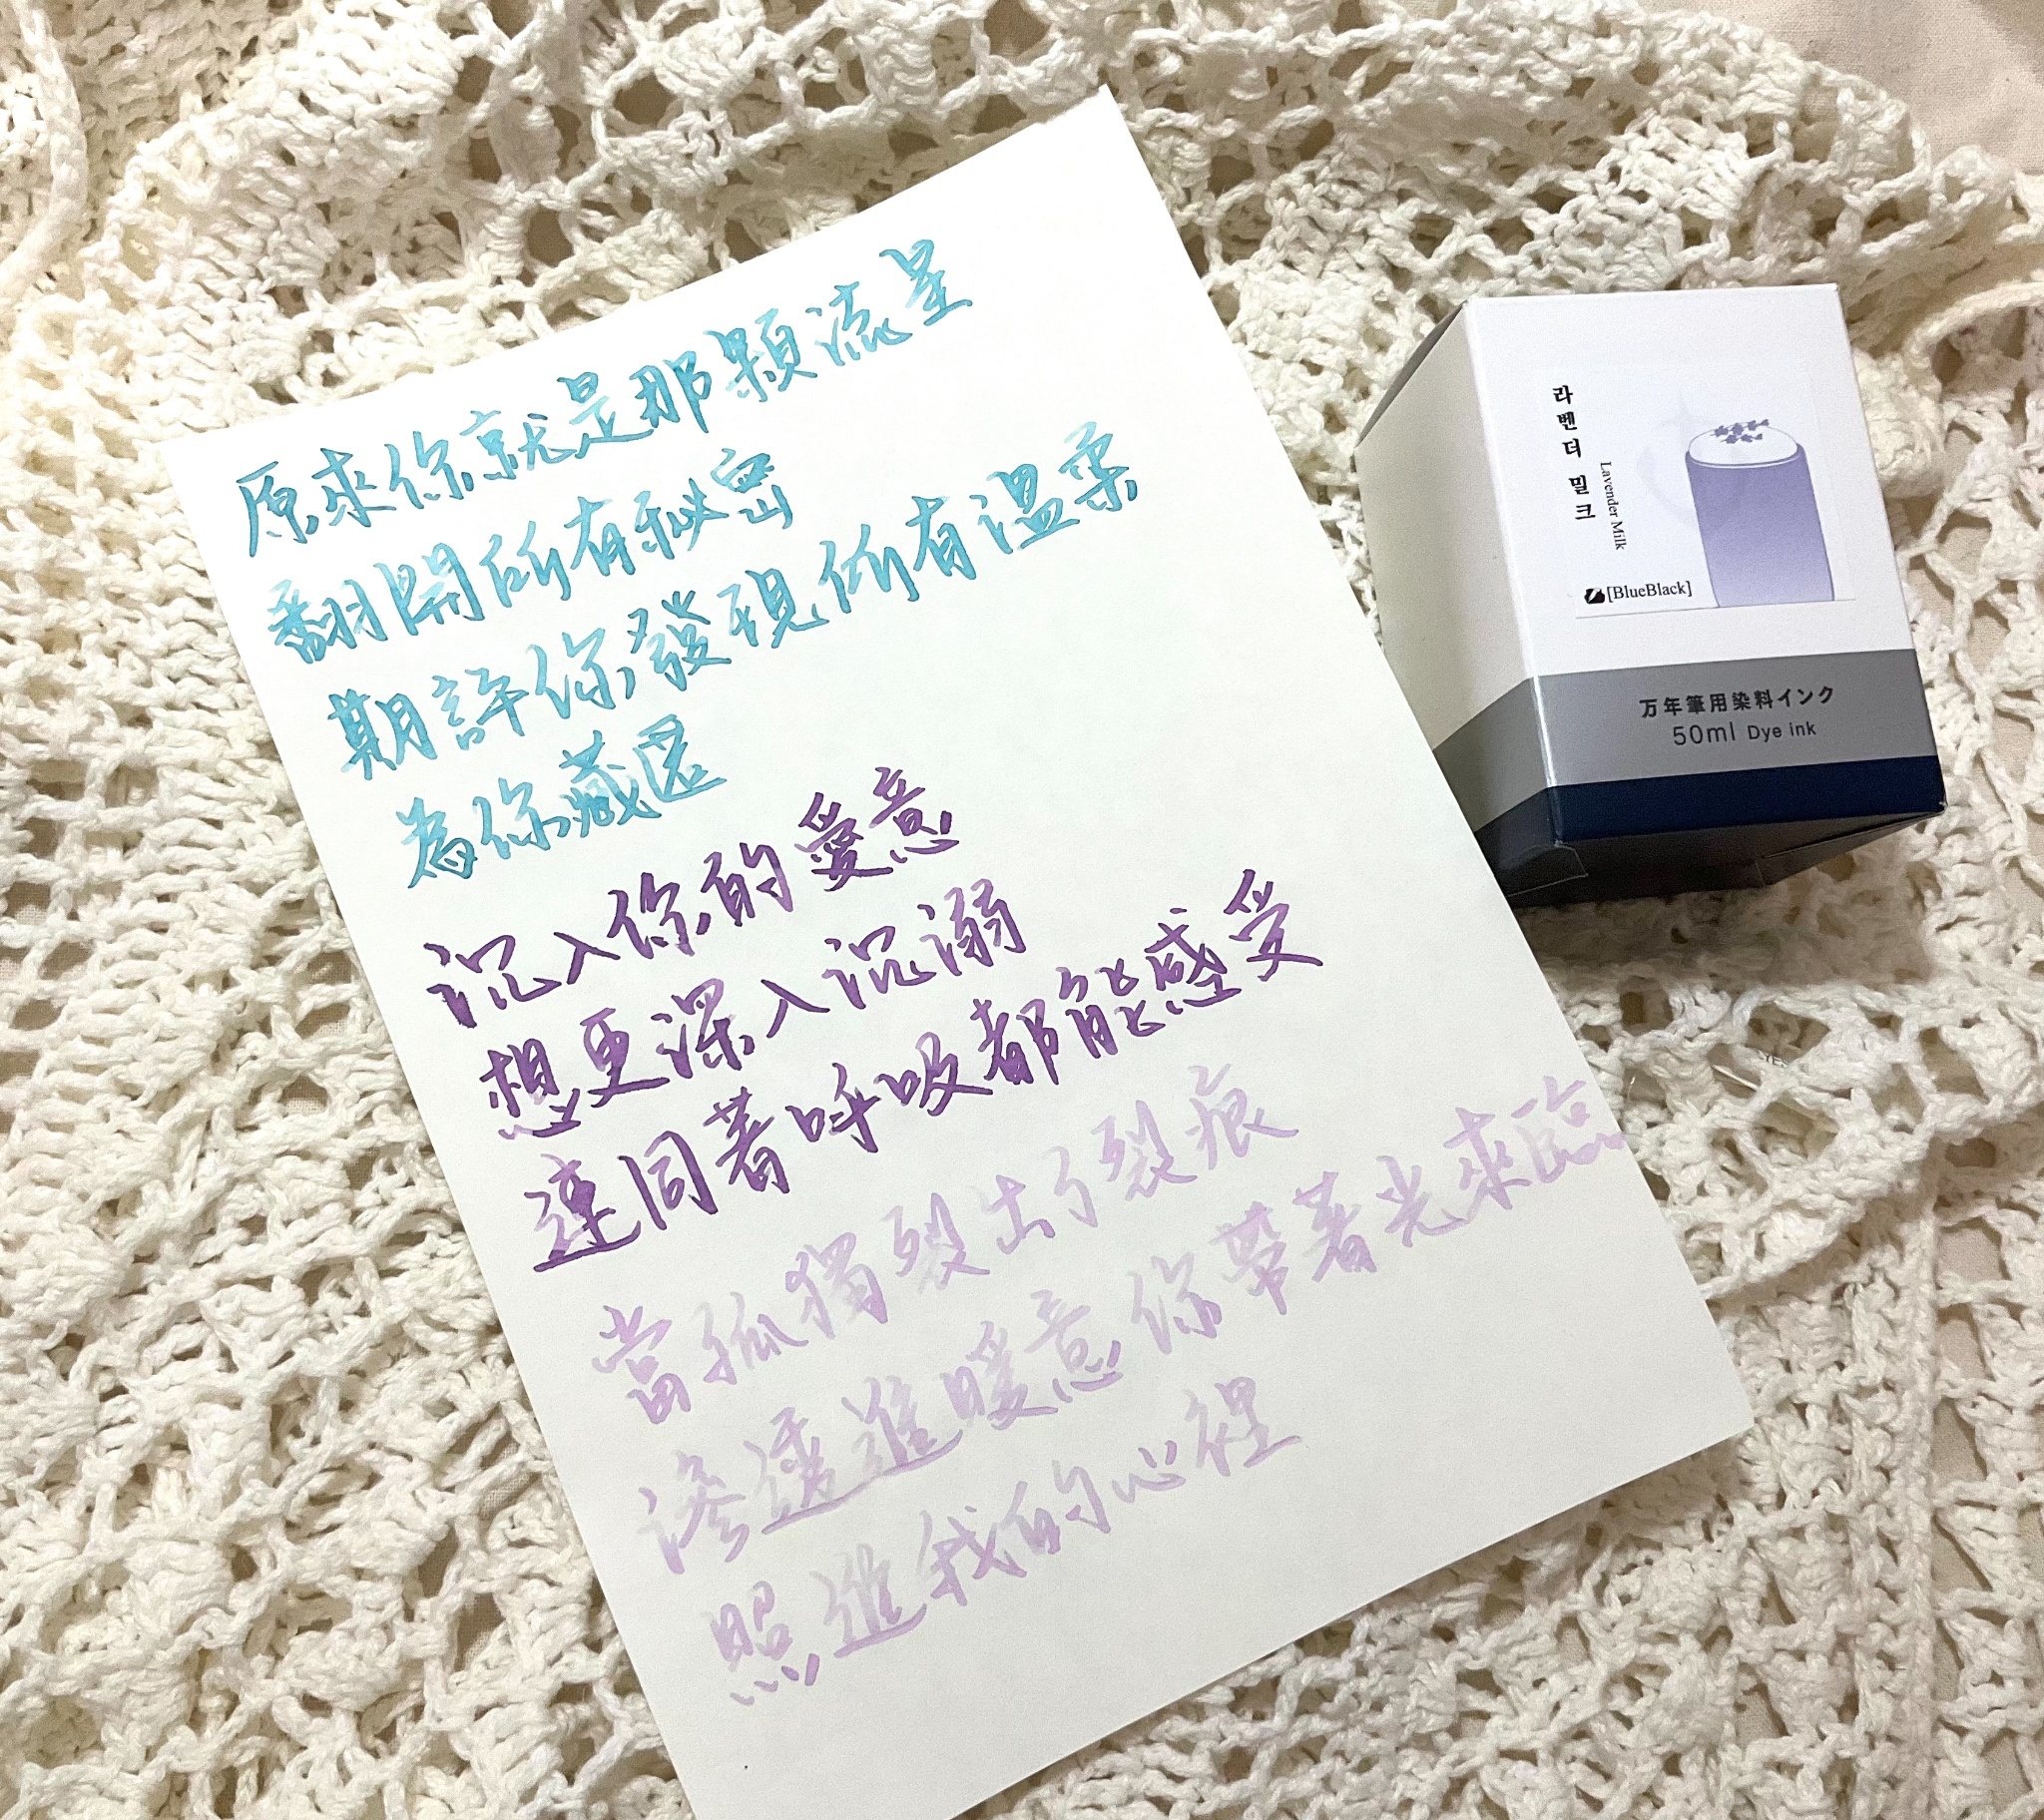 原來你就是那顆流星
翻開所有秘密
期許你發現所有溫柔
為你藏匿
沉入你的愛意
想更深入沉溺
連同著呼吸都能感受
當孤獨裂出了裂痕
滲透進暖意你帶著光來臨
照進我的心裡
라벤더 밀크
Lavender Milk
[BlueBlack]
万年筆用染料インク
50ml Dye ink